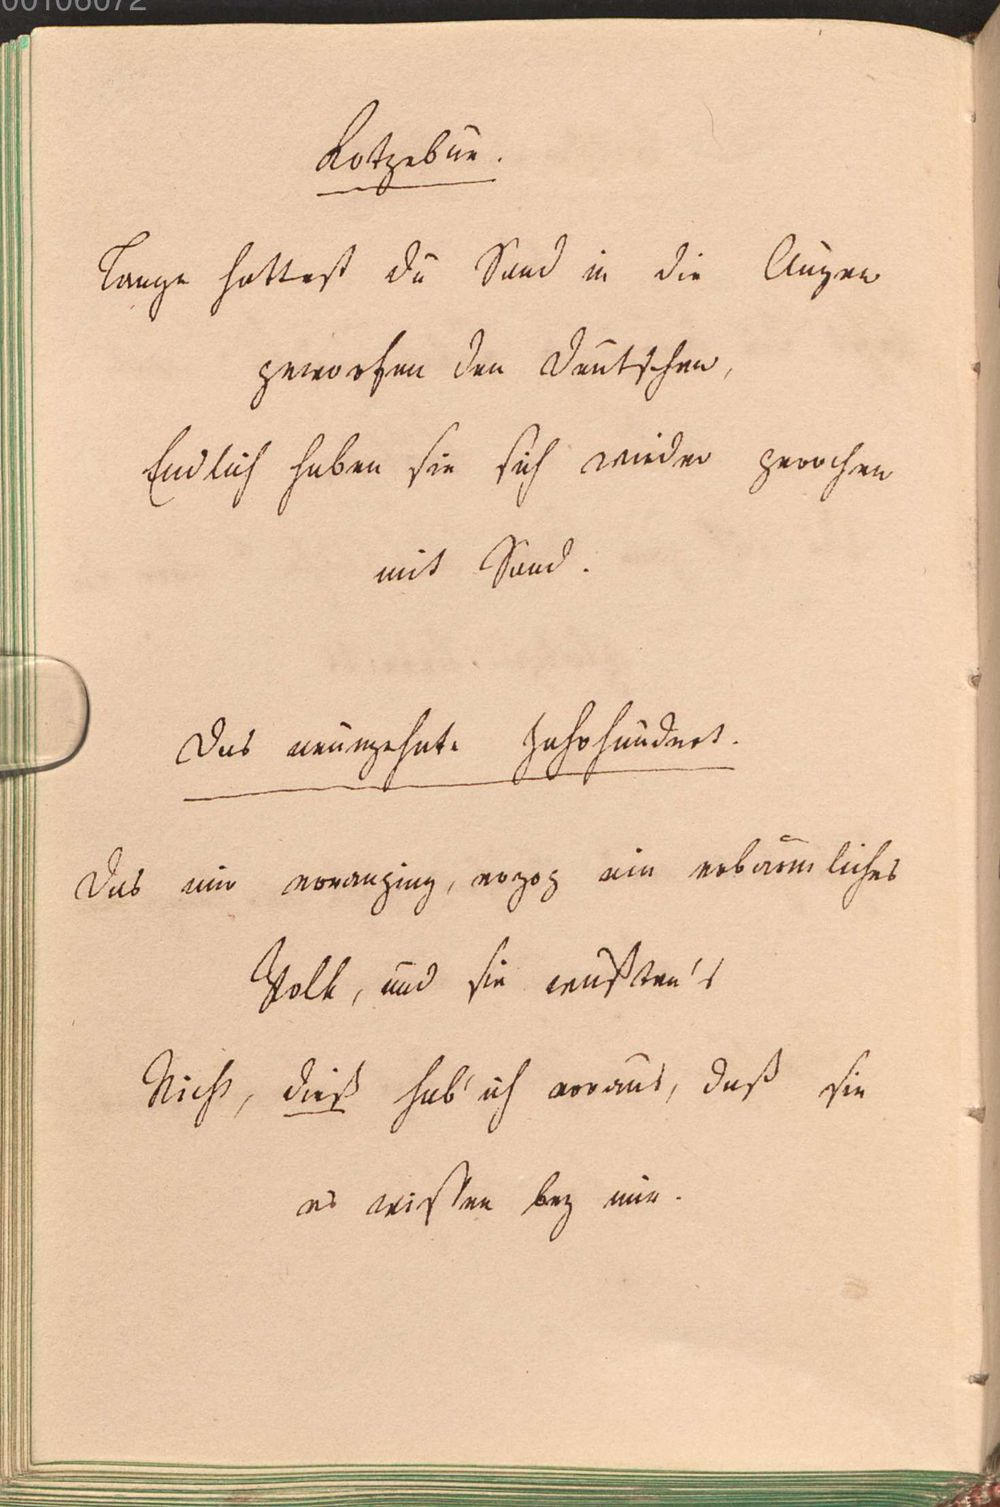 00106072
Kotzebue.
Lange hattest du Sand in die Augen
geworfen den Deutschen,
Endlich haben sie sich wieder gerochen
mit Sand.
Das neunzehnte Jahrhundert.
Das mir voranging, erzog ein erbärmliches
Volk, und sie wußten's
Nicht, dieß hab' ich voraus, daß sie
es wissen bey mir.